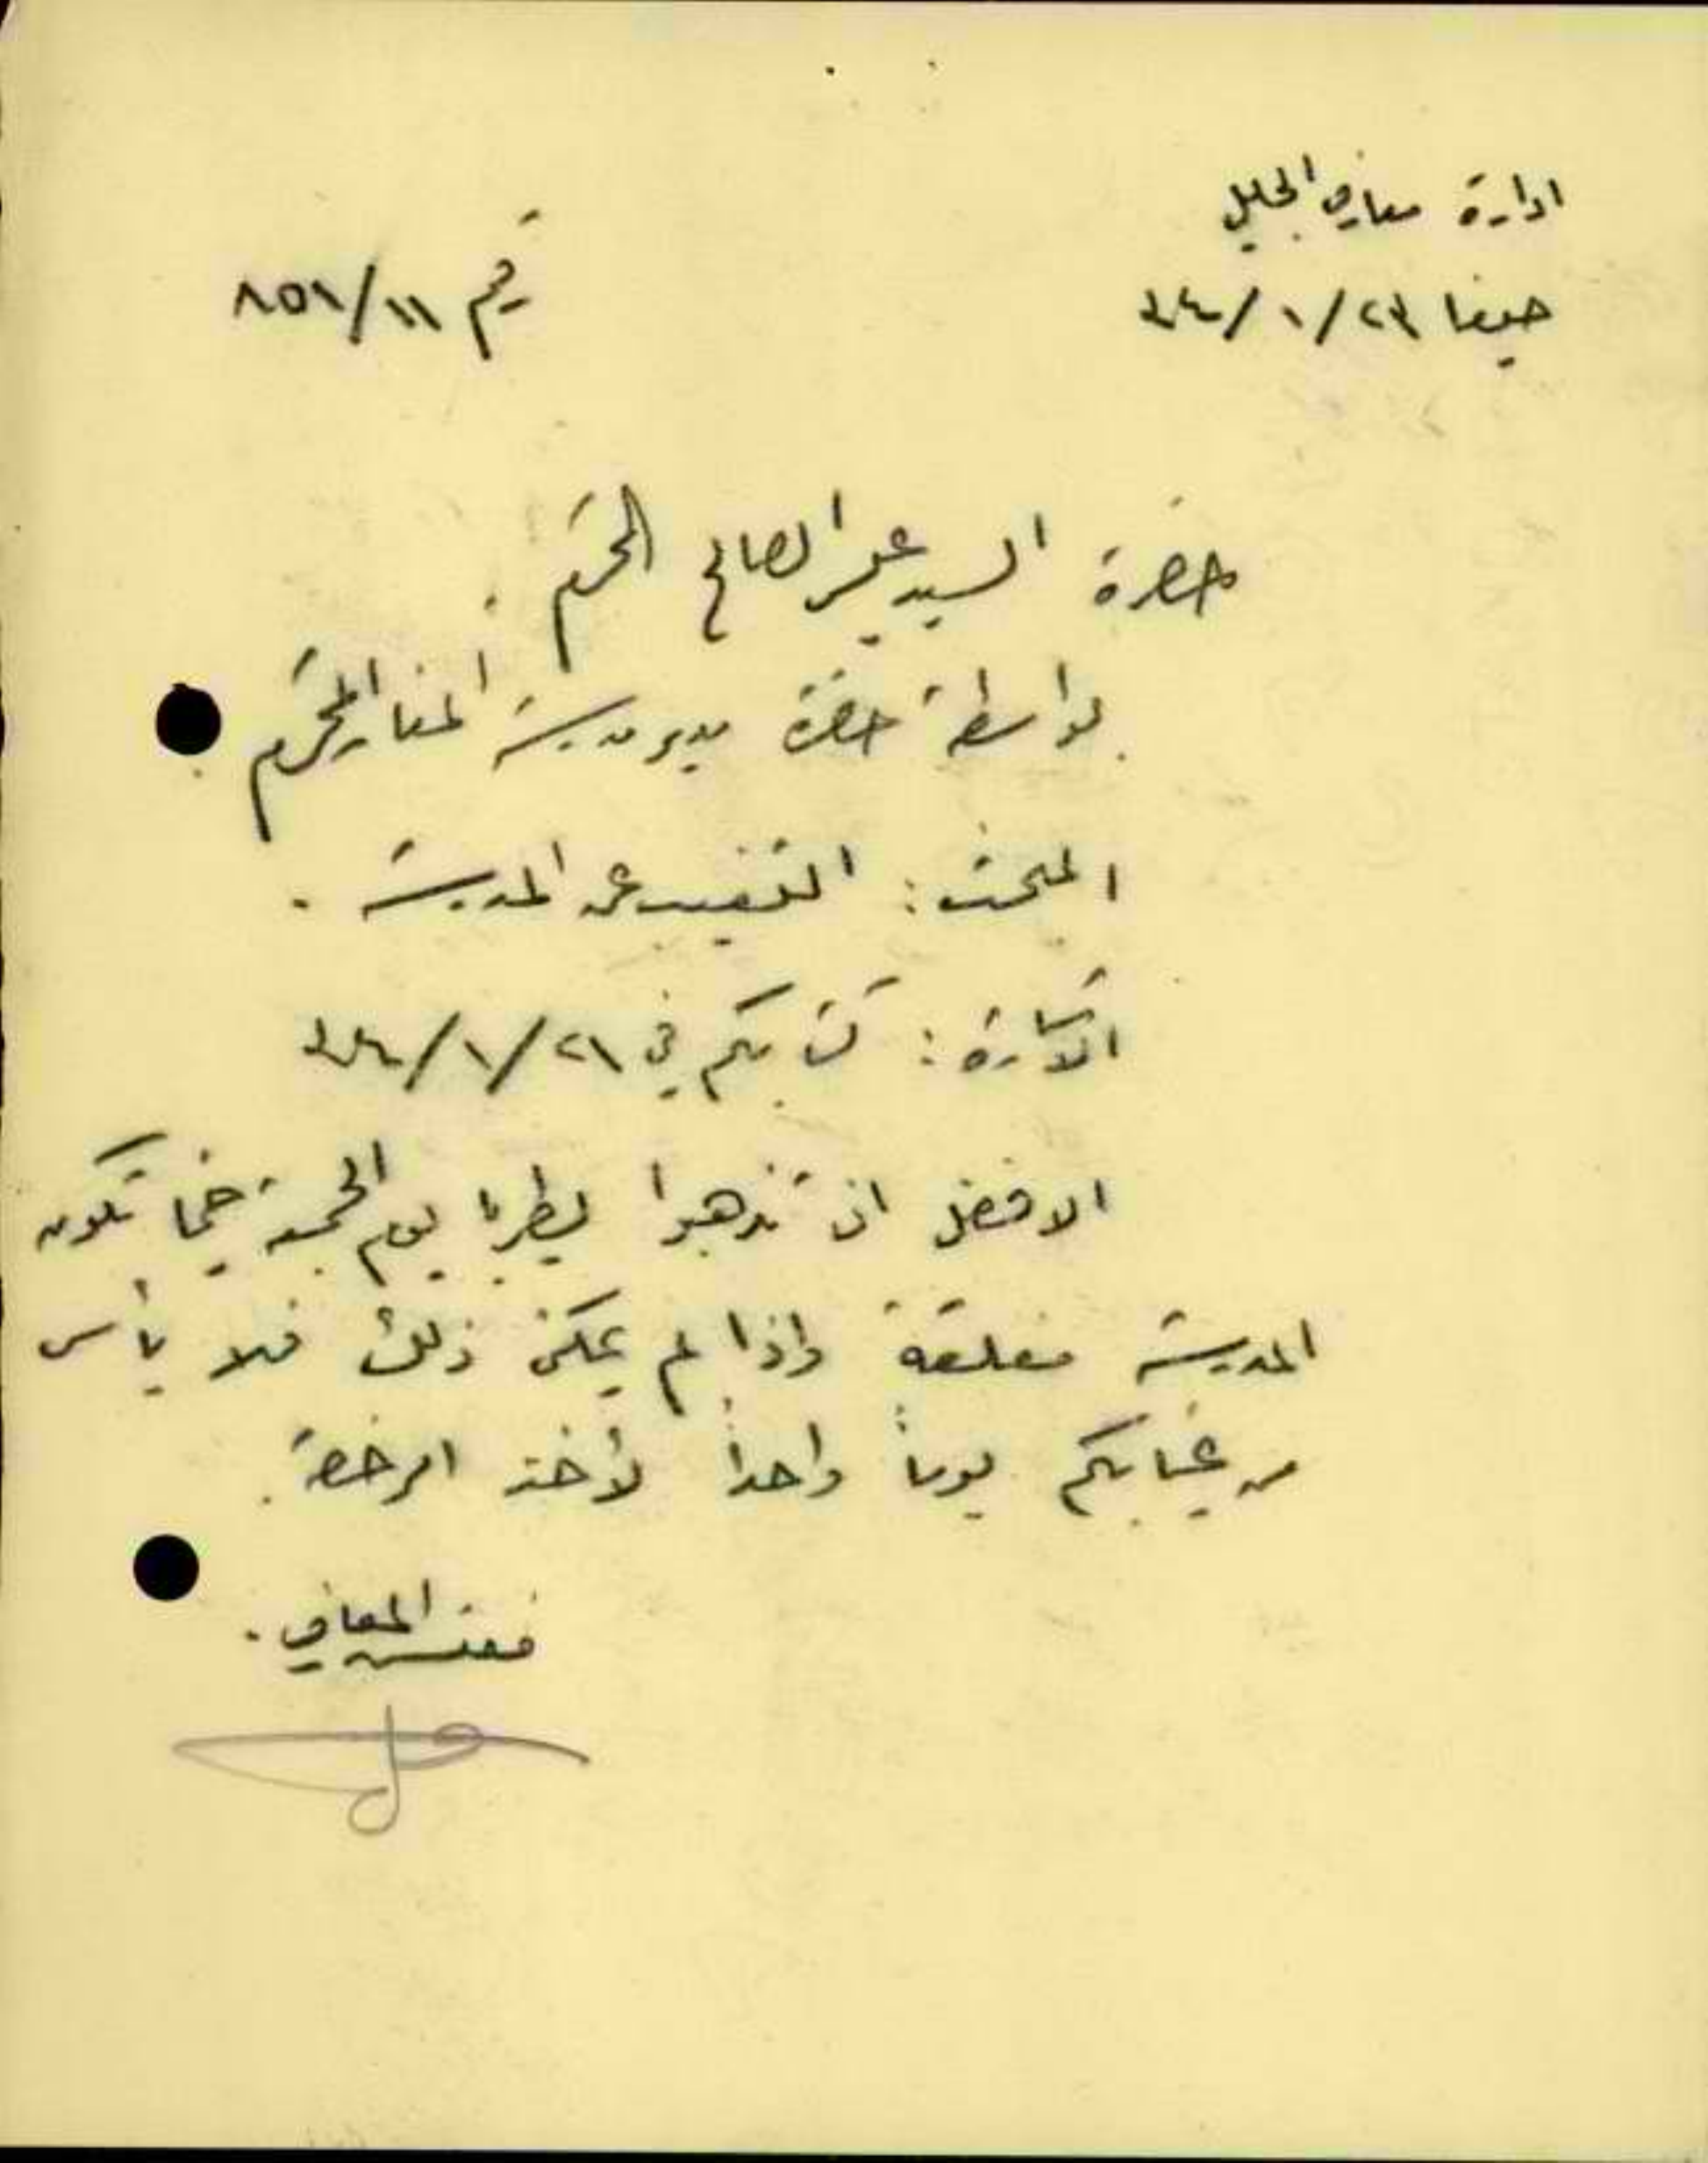 ادارة معارف الجليل
حيفا ٢٣/١/٩٤٠
رقم ٨٥١/١١
حضرة السيد علي الصالح المحترم .
بواسطة حضرة مدير مدرسة المغار المحترم
المبحث : التغيب عن المدرسة .
الاشارة : كتابكم في ٢١/١/٩٤٠
الافضل ان تذهبوا لطبريا يوم الجمعة حينما تكون
المدرسة مغلقة واذا لم يمكن ذلك فلا بأس
من غيابكم يوماً واحداً لأخذ الرخصة .
مفتش المعارف .